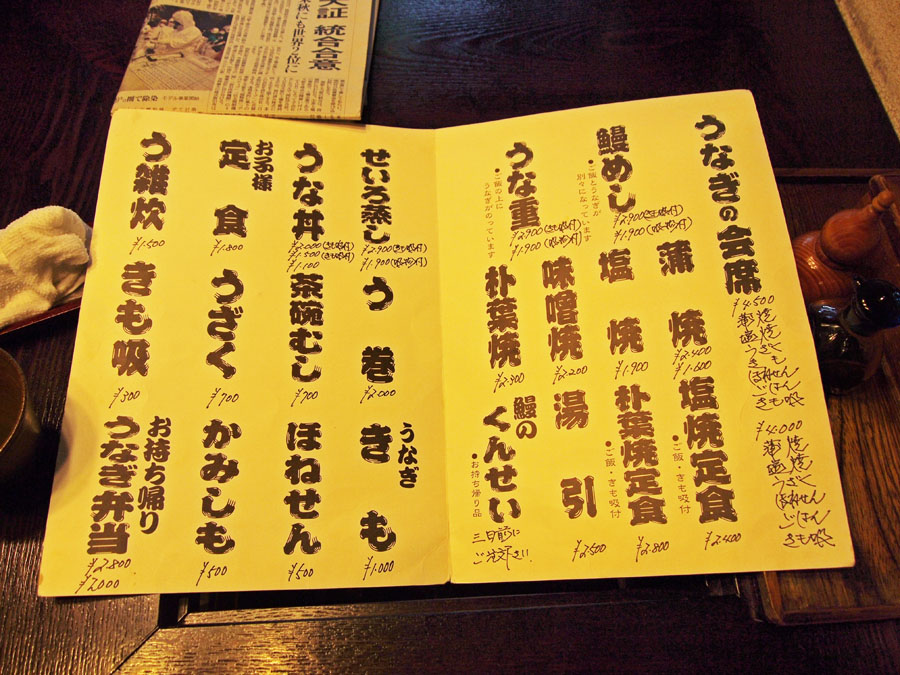 大証 統合合意
うなぎの会席
¥4.500
蒲焼
塩焼
うざく
きも
ほねせん
ごはん
きも吸
¥4.000
蒲焼
塩焼
うざく
ほねせん
ごはん
きも吸
鰻めし
●ご飯とうなぎが
別々になっています
¥2.900(きも吸付)
¥1.900(吸物付)
蒲焼
¥2.400
¥1.600
塩焼定食
●ご飯・きも吸付
¥2.400
塩焼
¥1.900
朴葉焼定食
●ご飯・きも吸付
¥2.800
うな重
●ご飯の上に
うなぎがのっています
¥2.900(きも吸付)
¥1.900(吸物付)
味噌焼
¥2.200
湯引
¥2.500
朴葉焼
¥2.300
鰻の
くんせい
●お持ち帰り品
三日前に
ご注文下さい!!
せいろ蒸し
¥2.900(きも吸付)
¥1.900(吸物付)
う巻
¥2.000
うなぎ
きも
¥1.000
うな丼
¥2.000(きも吸付)
¥1.500(きも吸付)
¥1.100
茶碗むし
¥700
ほねせん
¥500
お子様
定食
¥1.800
うざく
¥700
かみしも
¥500
う雑炊
¥1.500
きも吸
¥300
お持ち帰り
うなぎ弁当
¥2.800
¥2.000